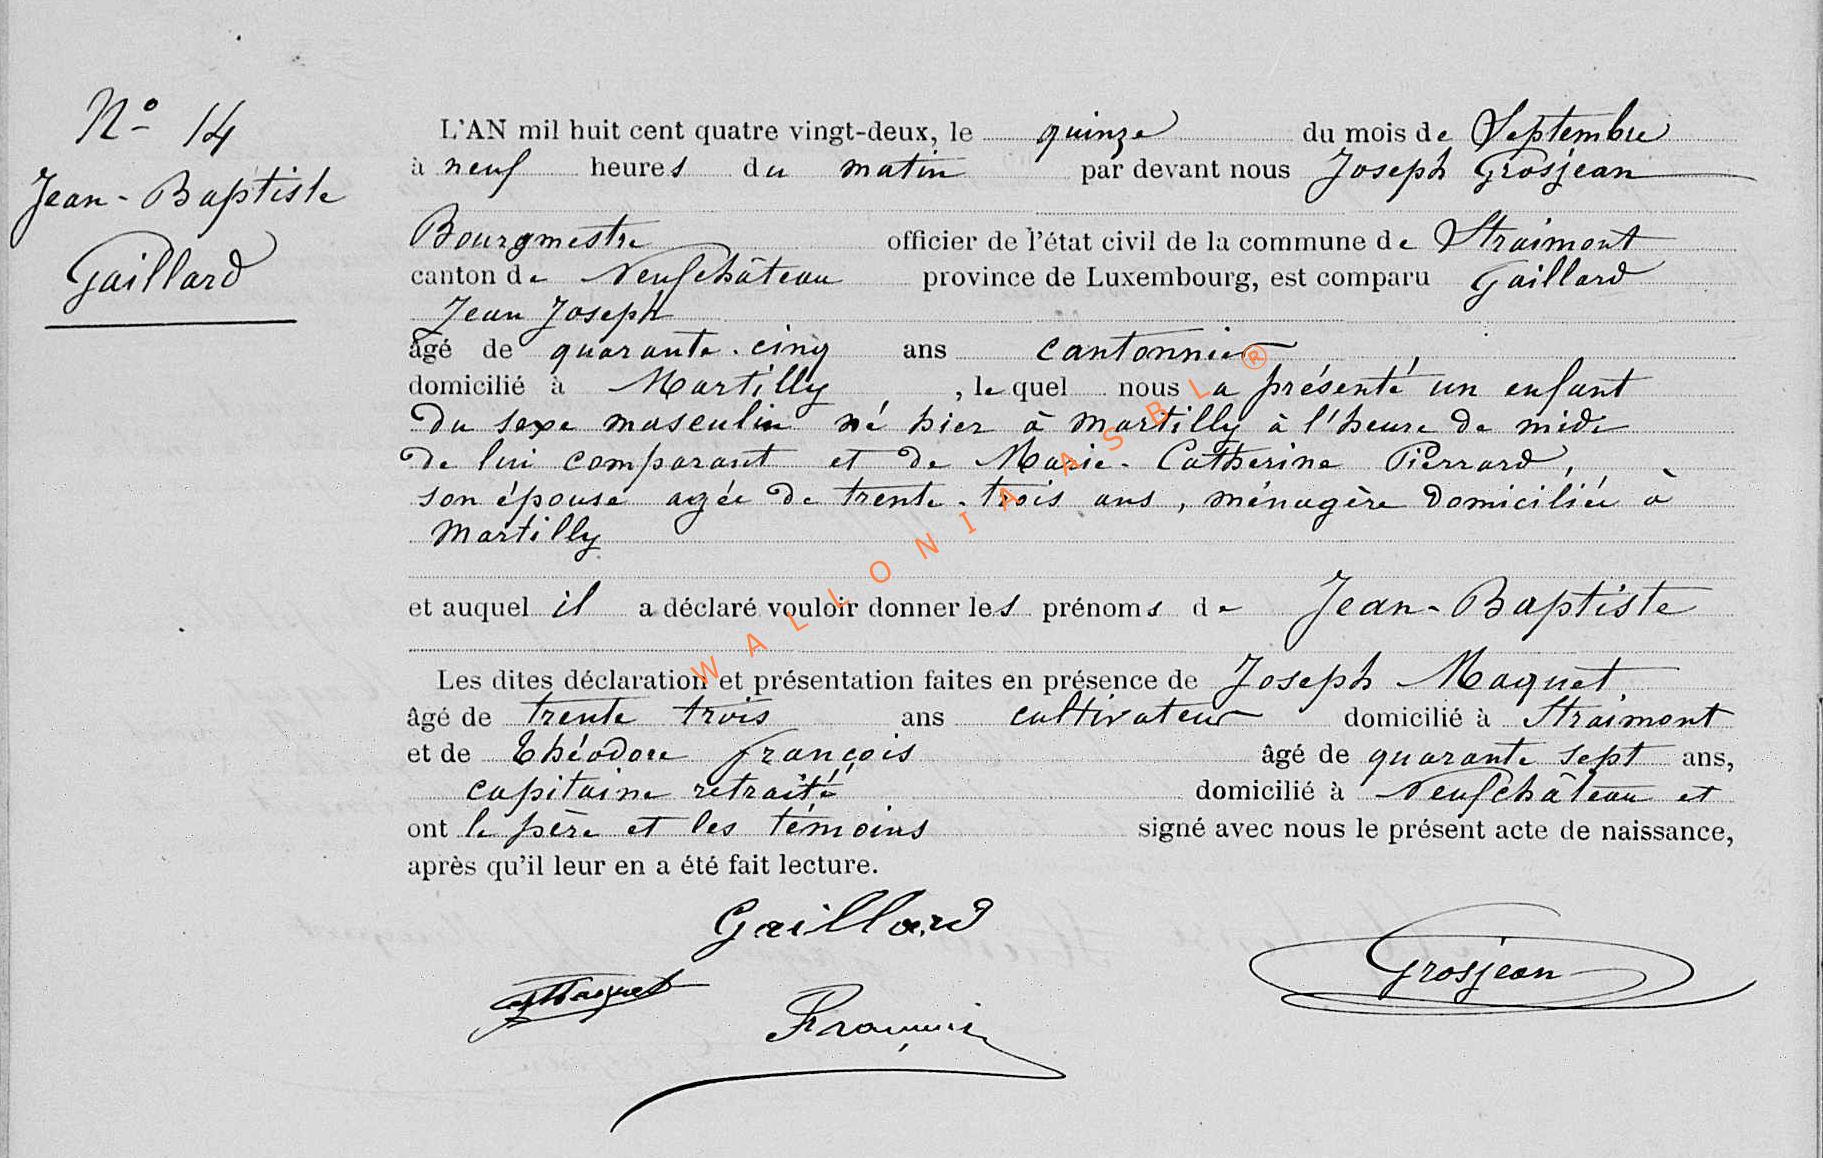 N° 14
Jean-Baptiste
Gaillard
L'AN mil huit cent quatre vingt-deux, le quinze du mois de Septembre
à neuf heures du matin par devant nous Joseph Grosjean
Bourgmestre officier de l'état civil de la commune de Straimont
canton de Neufchâteau province de Luxembourg, est comparu Gaillard
Jean Joseph
âgé de quarante-cinq ans cantonnier
domicilié à Martilly, le quel nous a présenté un enfant
du sexe masculin né hier à Martilly à l'heure de midi
de lui comparant et de Marie-Catherine Pierrard,
son épouse agée de trente-trois ans, ménagère domiciliée à
Martilly
et auquel il a déclaré vouloir donner les prénoms de Jean-Baptiste
Les dites déclaration et présentation faites en présence de Joseph Maquet,
âgé de trente trois ans cultivateur domicilié à Straimont
et de Théodore François âgé de quarante sept ans,
capitaine retraité domicilié à Neufchâteau et
ont le père et les témoins signé avec nous le présent acte de naissance,
après qu'il leur en a été fait lecture.
Gaillard
Grosjean
Maquet
François
WALLONIA ASBL ®